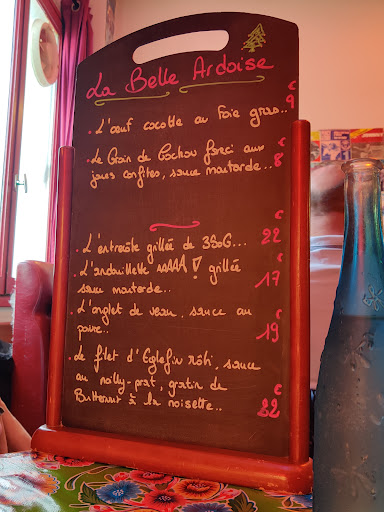 La Belle Ardoise
. L'œuf cocotte au foie gras.. € 9
. Le Groin de Cochon farci aux € 8
joues confites, sauce moutarde..
. L'entrecôte grillée de 350G... € 22
. L'andouillette AAAAA ! grillée € 17
sauce moutarde..
. L'onglet de veau, sauce au € 19
poivre..
. Le filet d'Eglefin rôti, sauce
au noilly-prat, gratin de €
Butternut à la noisette.. 22